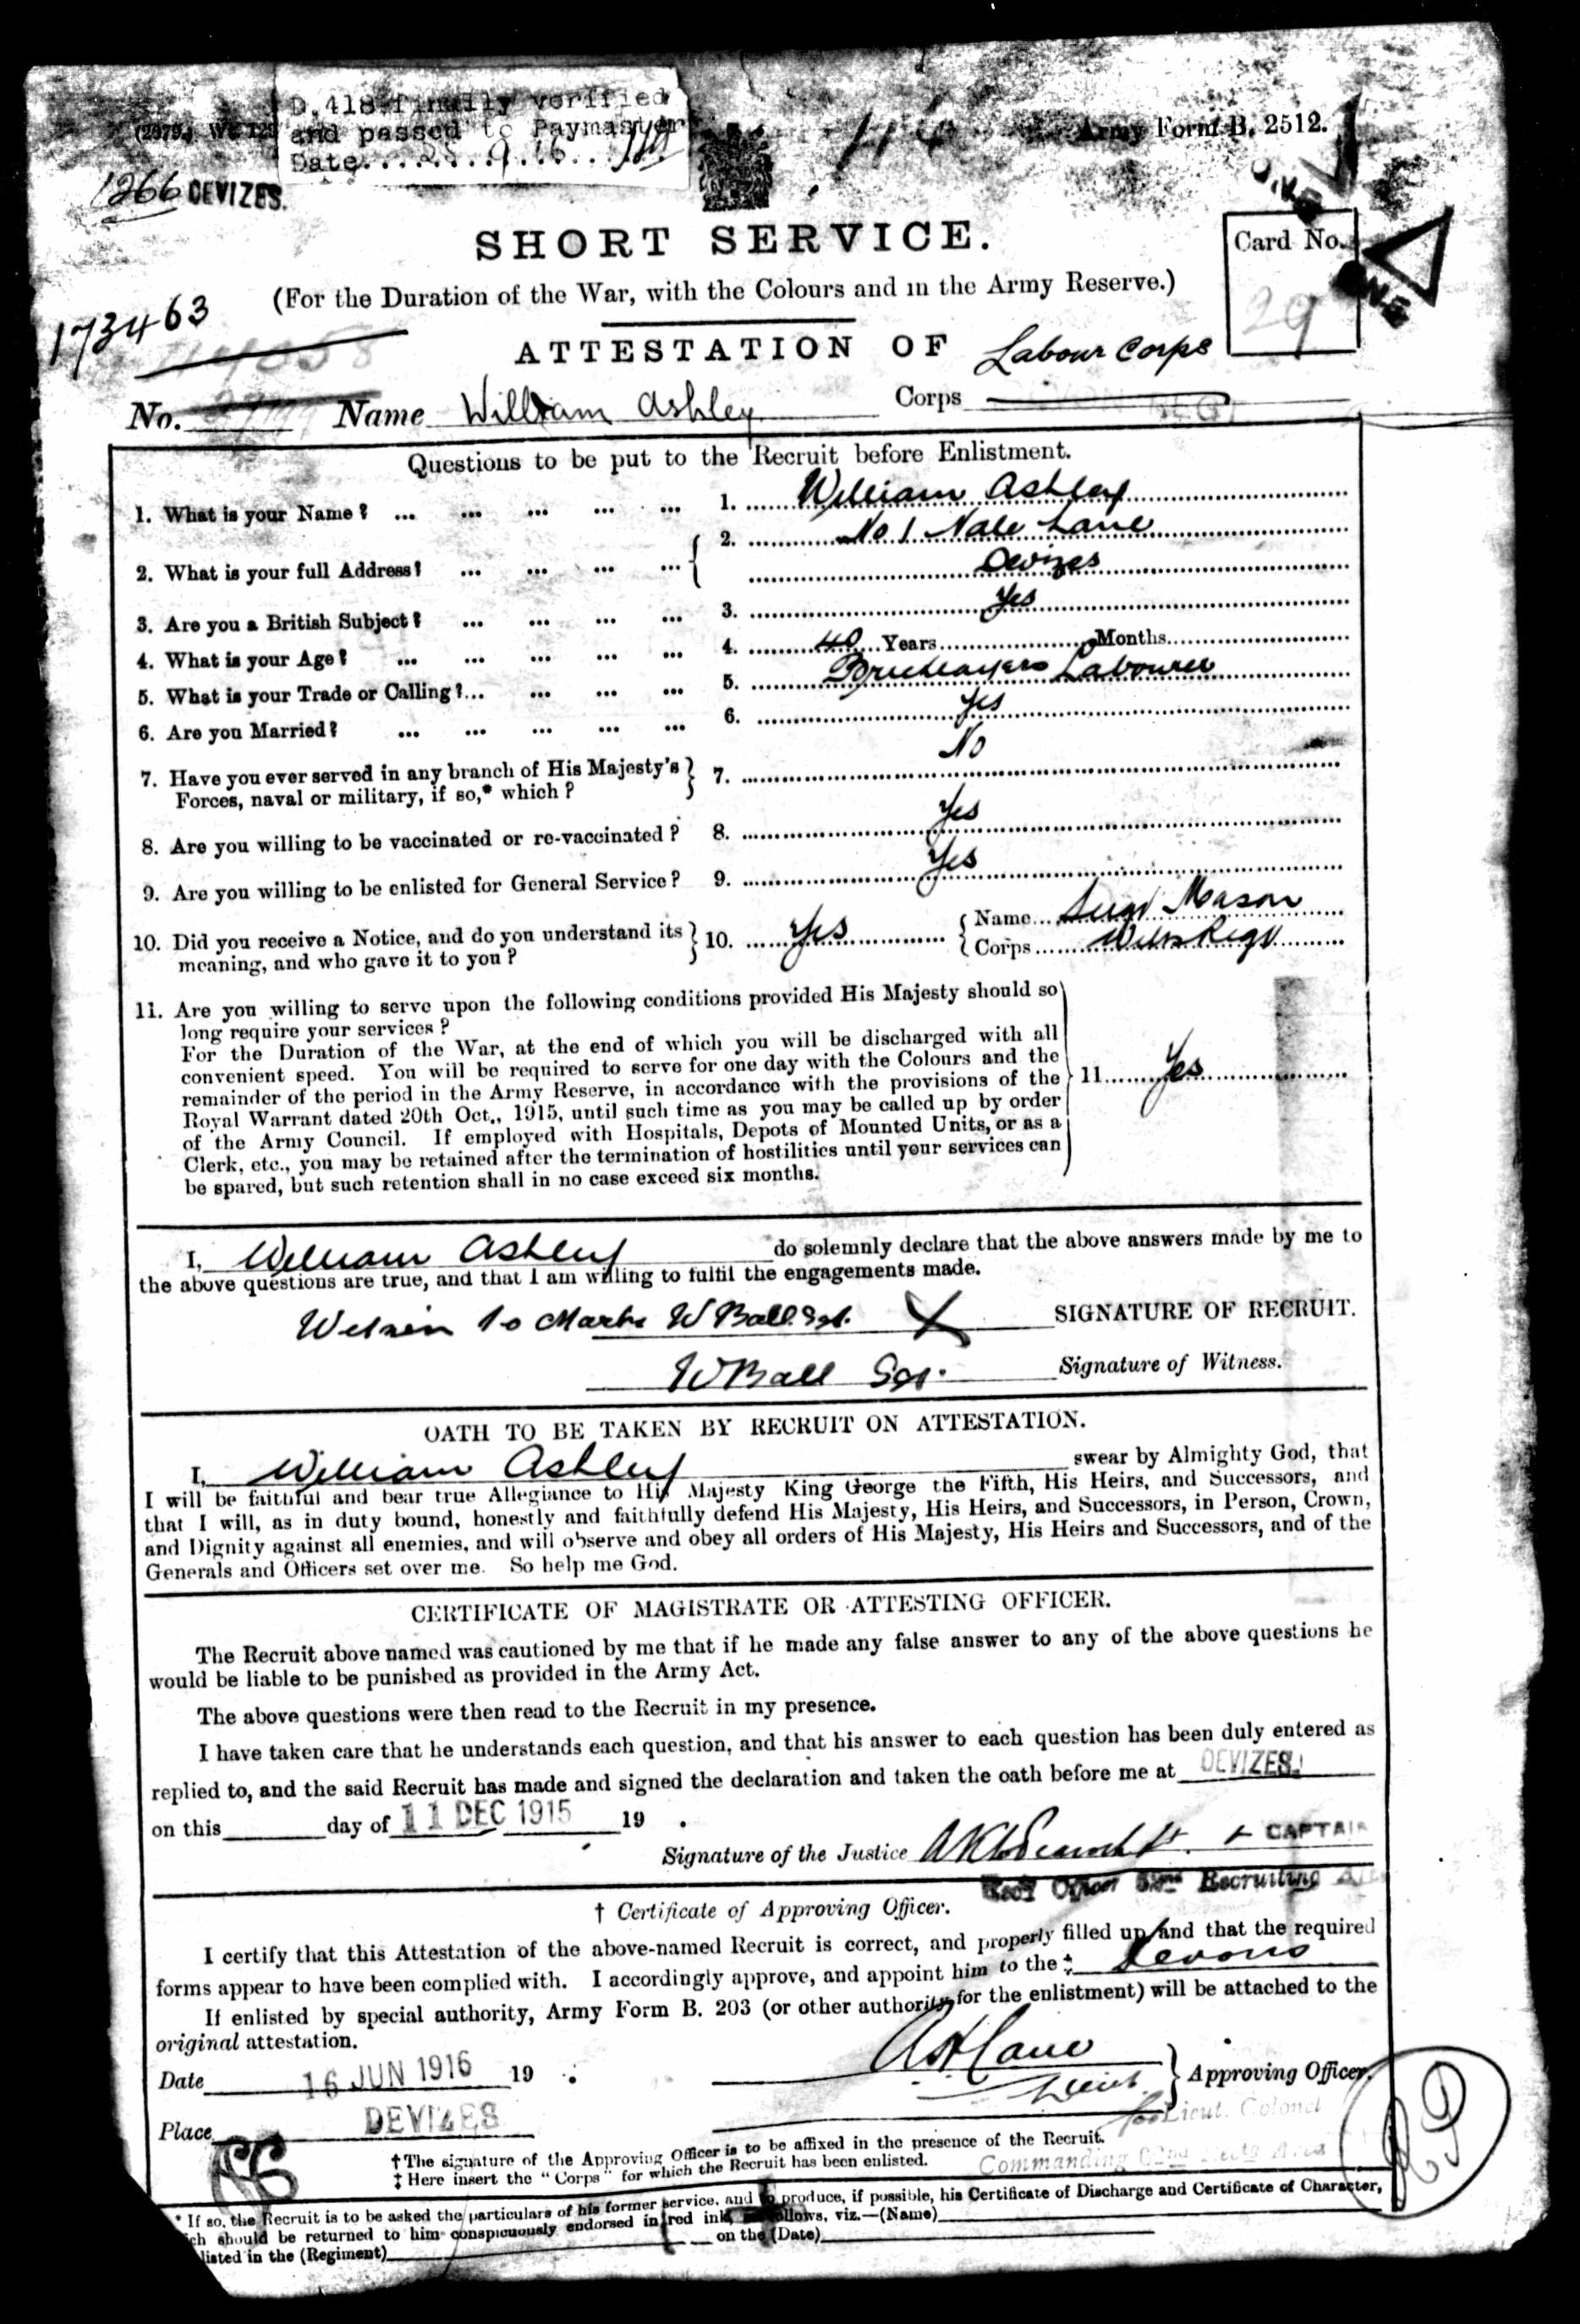 D.418 finally verified
and passed to Paymaster
Date....25.9.16...
Army Form B. 2512.
1266 DEVIZES.
SHORT SERVICE.
(For the Duration of the War, with the Colours and in the Army Reserve.)
Card No.
29
173463
ATTESTATION OF Labour Corps
No. Name William Ashley Corps
Questions to be put to the Recruit before Enlistment.
1. What is your Name? ... ... ... ... ... 1. William Ashley
2. What is your full Address? ... ... ... ... 2. No 1 Nale Lane
Devizes
3. Are you a British Subject? ... ... ... ... 3. Yes
4. What is your Age? ... ... ... ... ... 4. 40 Years Months
5. What is your Trade or Calling?... ... ... ... 5. Bricklayers Labourer
6. Are you Married? ... ... ... ... ... 6. Yes
7. Have you ever served in any branch of His Majesty's Forces, naval or military, if so,* which? 7. No
8. Are you willing to be vaccinated or re-vaccinated? 8. Yes
9. Are you willing to be enlisted for General Service? 9. Yes
10. Did you receive a Notice, and do you understand its meaning, and who gave it to you? 10. Yes Name Sergt Mason
Corps Wilts Regt
11. Are you willing to serve upon the following conditions provided His Majesty should so
long require your services?
For the Duration of the War, at the end of which you will be discharged with all
convenient speed. You will be required to serve for one day with the Colours and the
remainder of the period in the Army Reserve, in accordance with the provisions of the
Royal Warrant dated 20th Oct., 1915, until such time as you may be called up by order
of the Army Council. If employed with Hospitals, Depots of Mounted Units, or as a
Clerk, etc., you may be retained after the termination of hostilities until your services can
be spared, but such retention shall in no case exceed six months.
11 Yes
I, William Ashley do solemnly declare that the above answers made by me to
the above questions are true, and that I am willing to fulfil the engagements made.
W Ball Sgt. X SIGNATURE OF RECRUIT.
W Ball Sgt. Signature of Witness.
OATH TO BE TAKEN BY RECRUIT ON ATTESTATION.
I, William Ashley swear by Almighty God, that
I will be faithful and bear true Allegiance to His Majesty King George the Fifth, His Heirs, and Successors, and
that I will, as in duty bound, honestly and faithfully defend His Majesty, His Heirs, and Successors, in Person, Crown,
and Dignity against all enemies, and will observe and obey all orders of His Majesty, His Heirs and Successors, and of the
Generals and Officers set over me. So help me God.
CERTIFICATE OF MAGISTRATE OR ATTESTING OFFICER.
The Recruit above named was cautioned by me that if he made any false answer to any of the above questions he
would be liable to be punished as provided in the Army Act.
The above questions were then read to the Recruit in my presence.
I have taken care that he understands each question, and that his answer to each question has been duly entered as
replied to, and the said Recruit has made and signed the declaration and taken the oath before me at DEVIZES
on this day of 11 DEC 1915 19 .
Signature of the Justice CAPTAIN
Officer Recruiting
† Certificate of Approving Officer.
I certify that this Attestation of the above-named Recruit is correct, and properly filled up, and that the required
forms appear to have been complied with. I accordingly approve, and appoint him to the ‡ Devons
If enlisted by special authority, Army Form B. 203 (or other authority for the enlistment) will be attached to the
original attestation.
Date 16 JUN 1916 19 .
Lieut. Approving Officer.
for Lieut. Colonel
Place DEVIZES
Commanding
†The signature of the Approving Officer is to be affixed in the presence of the Recruit.
‡Here insert the "Corps" for which the Recruit has been enlisted.
* If so, the Recruit is to be asked the particulars of his former service, and to produce, if possible, his Certificate of Discharge and Certificate of Character,
should be returned to him conspicuously endorsed in red ink, as follows, viz.—(Name)
listed in the (Regiment) on the (Date)